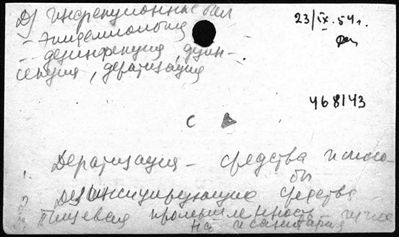 Д) инфекционные бол
– эпидемиология
– дезинфекция, дезин-
секция, дератизация
23/IX.54г.
468143
С
Дератизация – средства и спосо-
бы
Дезинсицирующие средства
Пищевая промышленность – гигие
на и санитария